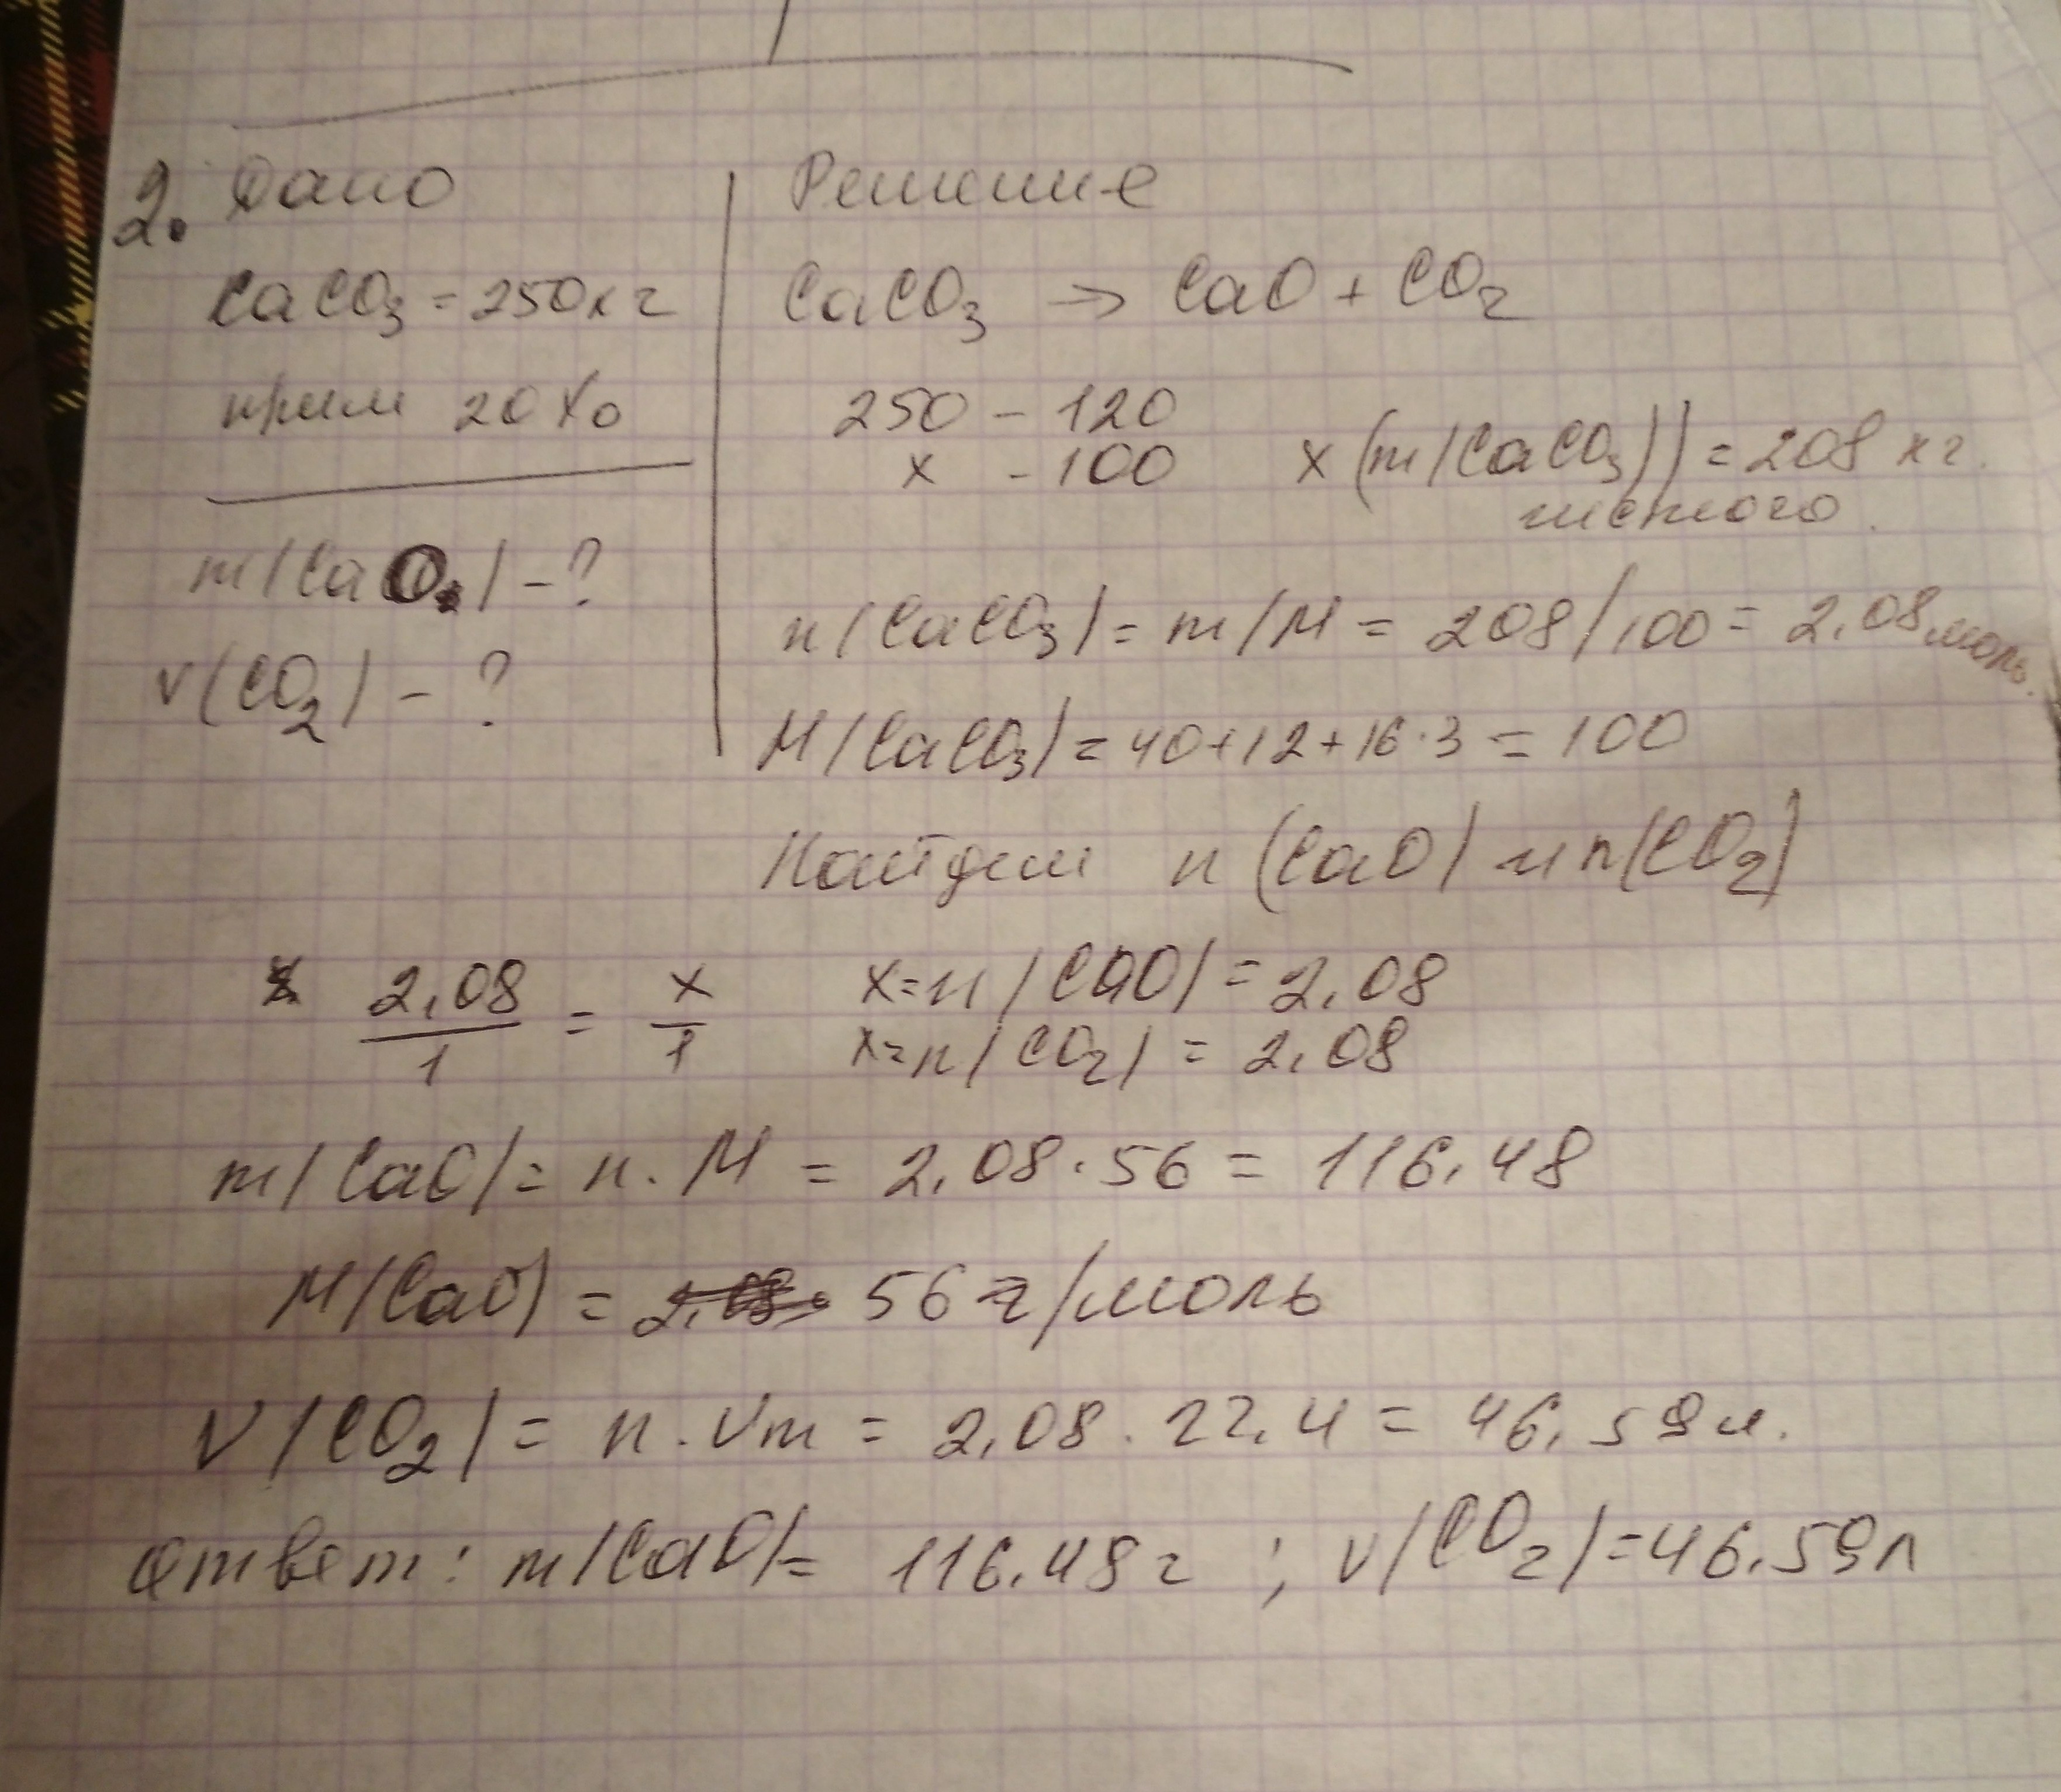 2. Дано
CaCO3 = 250кг
прим 20%
m(CaO) - ?
v(CO2) - ?
Решение
CaCO3 → CaO + CO2
250 - 120
x - 100 x(m(CaCO3)) = 208 кг.
чистого.
n(CaCO3) = m/M = 208/100 = 2,08 моль.
M(CaCO3) = 40+12+16·3 = 100
Найдем n(CaO) и n(CO2)
2,08/1 = x/1 x=n(CaO) = 2,08
x=n(CO2) = 2,08
m(CaO) = n·M = 2,08·56 = 116,48
M(CaO) = 56 г/моль
V(CO2) = n·Vm = 2,08·22,4 = 46,59л.
Ответ: m(CaO) = 116,48г ; v(CO2) = 46,59л